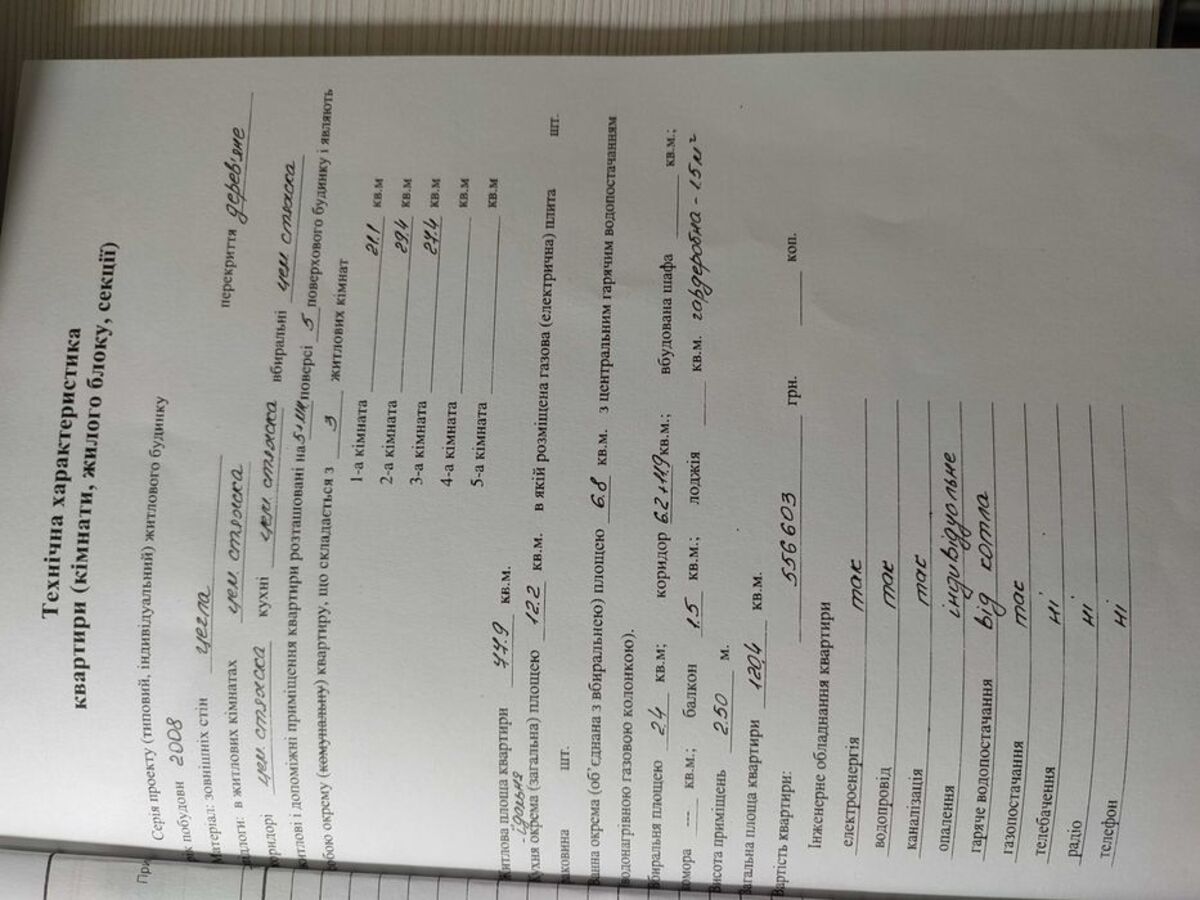 Технічна характеристика
квартири (кімнати, жилого блоку, секції)
При
Серія проекту (типовий, індивідуальний) житлового будинку
побудови 2008
Матеріал: зовнішніх стін цегла перекриття дерев'яне
в житлових кімнатах цем стяжка
коридорі цем стяжка кухні цем. стяжка вбиральні цем стяжка
житлові і допоміжні приміщення квартири розташовані на 5+ поверсі 5 поверхового будинку і являють
собою окрему (комунальну) квартиру, що складається з 3 житлових кімнат
1-а кімната 21.1 кв.м
2-а кімната 29.4 кв.м
3-а кімната 27.4 кв.м
4-а кімната кв.м
5-а кімната кв.м
Житлова площа квартири 77.9 кв.м.
-їдальня
Кухня окрема (загальна) площею 12.2 кв.м. в якій розміщена газова (електрична) плита шт.
раковина шт.
Ванна окрема (об'єднана з вбиральнею) площею 6.8 кв.м. з центральним гарячим водопостачанням
водонагрівною газовою колонкою).
вбиральня площею 2.4 кв.м; коридор 6.2+11.9 кв.м.; вбудована шафа кв.м.;
комора --- кв.м.; балкон 1.5 кв.м.; лоджія кв.м. гардеробна - 1.5 м²
Висота приміщень 2.50 м.
Загальна площа квартири 120.4 кв.м.
Вартість квартири: 556603 грн. коп.
Інженерне обладнання квартири
електроенергія так
водопровід так
каналізація так
опалення індивідуальне
гаряче водопостачання від котла
газопостачання так
телебачення ні
радіо ні
телефон ні